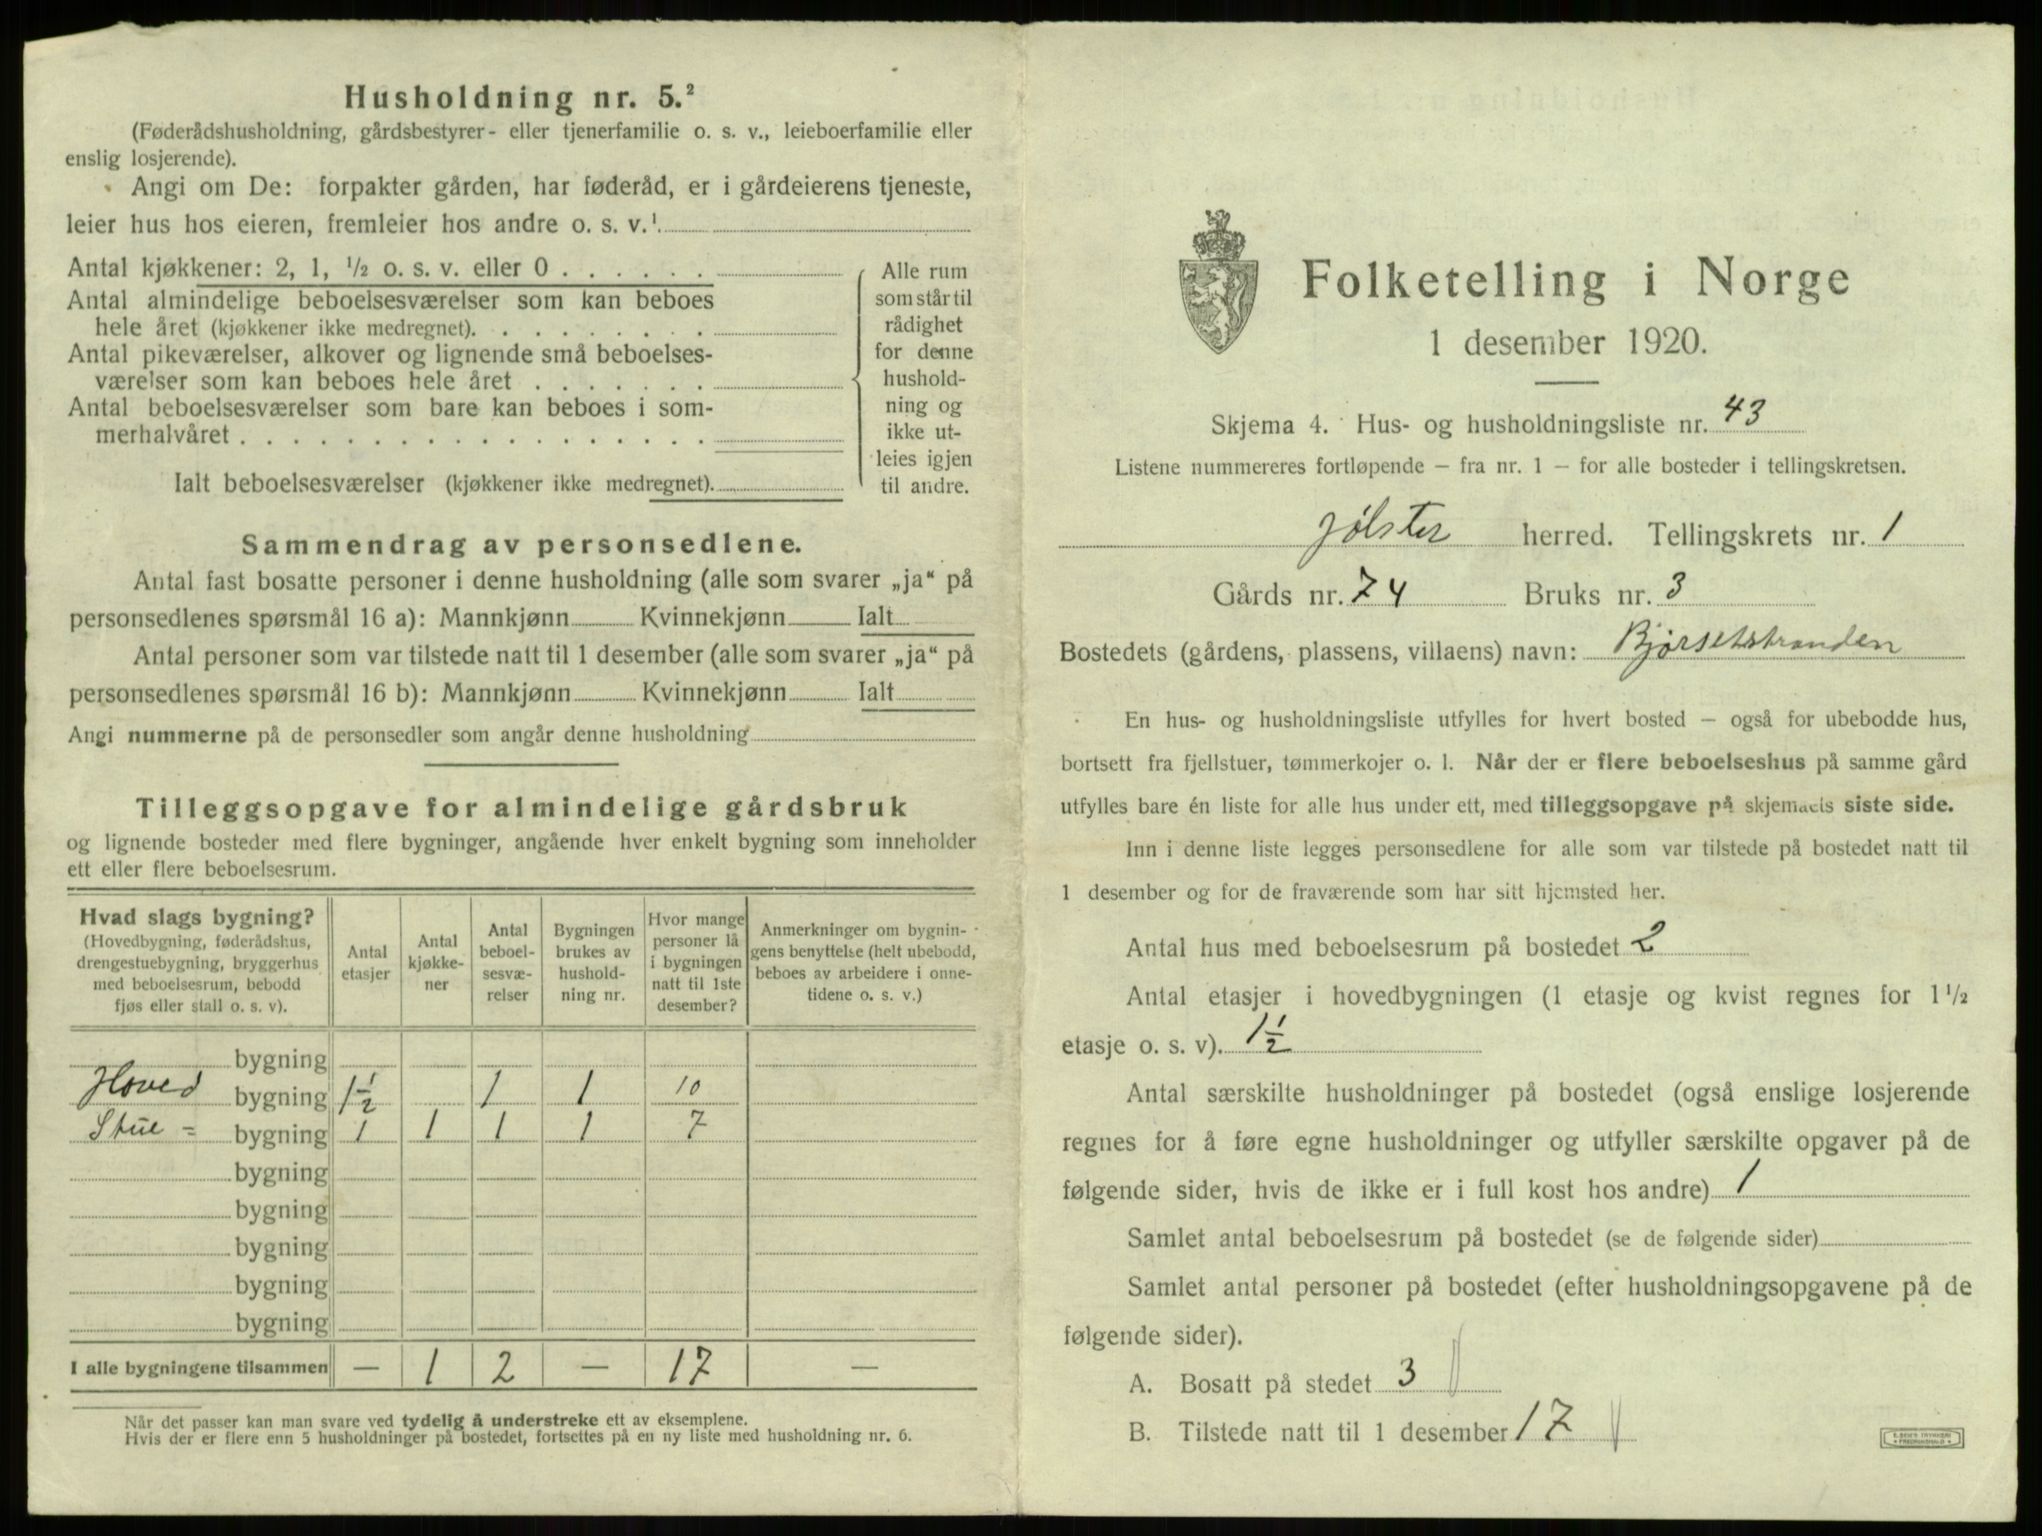 Husholdning nr. 5.²
(Føderådshusholdning, gårdsbestyrer- eller tjenerfamilie o. s. v., leieboerfamilie eller
enslig losjerende).
Angi om De: forpakter gården, har føderåd, er i gårdeierens tjeneste,
leier hus hos eieren, fremleier hos andre o. s. v.¹
Antal kjøkkener: 2, 1, ½ o. s. v. eller 0 . . . . . .
Antal almindelige beboelsesværelser som kan beboes
hele året (kjøkkener ikke medregnet). . . . . . . . .
Antal pikeværelser, alkover og lignende små beboelses-
værelser som kan beboes hele året . . . . . . .
Antal beboelsesværelser som bare kan beboes i som-
merhalvåret . . . . . . . . . . . . . . . . . .
Ialt beboelsesværelser (kjøkkener ikke medregnet).
Alle rum
som står til
rådighet
for denne
hushold-
ning og
ikke ut-
leies igjen
til andre.
Sammendrag av personsedlene.
Antal fast bosatte personer i denne husholdning (alle som svarer „ja“ på
personsedlenes spørsmål 16 a): Mannkjønn Kvinnekjønn Ialt
Antal personer som var tilstede natt til 1 desember (alle som svarer „ja“ på
personsedlenes spørsmål 16 b): Mannkjønn Kvinnekjønn Ialt
Angi nummerne på de personsedler som angår denne husholdning
Tilleggsopgave for almindelige gårdsbruk
og lignende bosteder med flere bygninger, angående hver enkelt bygning som inneholder
ett eller flere beboelsesrum.
Hvad slags bygning?
(Hovedbygning, føderådshus,
drengestuebygning, bryggerhus
med beboelsesrum, bebodd
fjøs eller stall o. s. v).
Antal
etasjer
Antal
kjøkke-
ner
Antal
beboel-
sesvæ-
relser
Bygningen
brukes av
hushold-
ning nr.
Hvor mange
personer lå
i bygningen
natt til 1ste
desember?
Anmerkninger om bygnin-
gens benyttelse (helt ubebodd,
beboes av arbeidere i onne-
tidene o. s. v.)
bygning
Hoved bygning 1½ 1 1 10
Stue = bygning 1 1 1 1 7
bygning
bygning
bygning
bygning
bygning
I alle bygningene tilsammen — 1 2 — 17 —
Når det passer kan man svare ved tydelig å understreke ett av eksemplene.
Hvis der er flere enn 5 husholdninger på bostedet, fortsettes på en ny liste med husholdning nr. 6.
Folketelling i Norge
1 desember 1920.
Skjema 4. Hus- og husholdningsliste nr. 43
Listene nummereres fortløpende – fra nr. 1 – for alle bosteder i tellingskretsen.
Jølster herred. Tellingskrets nr. 1
Gårds nr. 74 Bruks nr. 3
Bostedets (gårdens, plassens, villaens) navn: Bjørsetstranden
En hus- og husholdningsliste utfylles for hvert bosted – også for ubebodde hus,
bortsett fra fjellstuer, tømmerkojer o. l. Når der er flere beboelseshus på samme gård
utfylles bare én liste for alle hus under ett, med tilleggsopgave på skjemaets siste side.
Inn i denne liste legges personsedlene for alle som var tilstede på bostedet natt til
1 desember og for de fraværende som har sitt hjemsted her.
Antal hus med beboelsesrum på bostedet 2
Antal etasjer i hovedbygningen (1 etasje og kvist regnes for 1½
etasje o. s. v). 1½
Antal særskilte husholdninger på bostedet (også enslige losjerende
regnes for å føre egne husholdninger og utfyller særskilte opgaver på de
følgende sider, hvis de ikke er i full kost hos andre) 1
Samlet antal beboelsesrum på bostedet (se de følgende sider)
Samlet antal personer på bostedet (efter husholdningsopgavene på de
følgende sider).
A. Bosatt på stedet 3
B. Tilstede natt til 1 desember 17